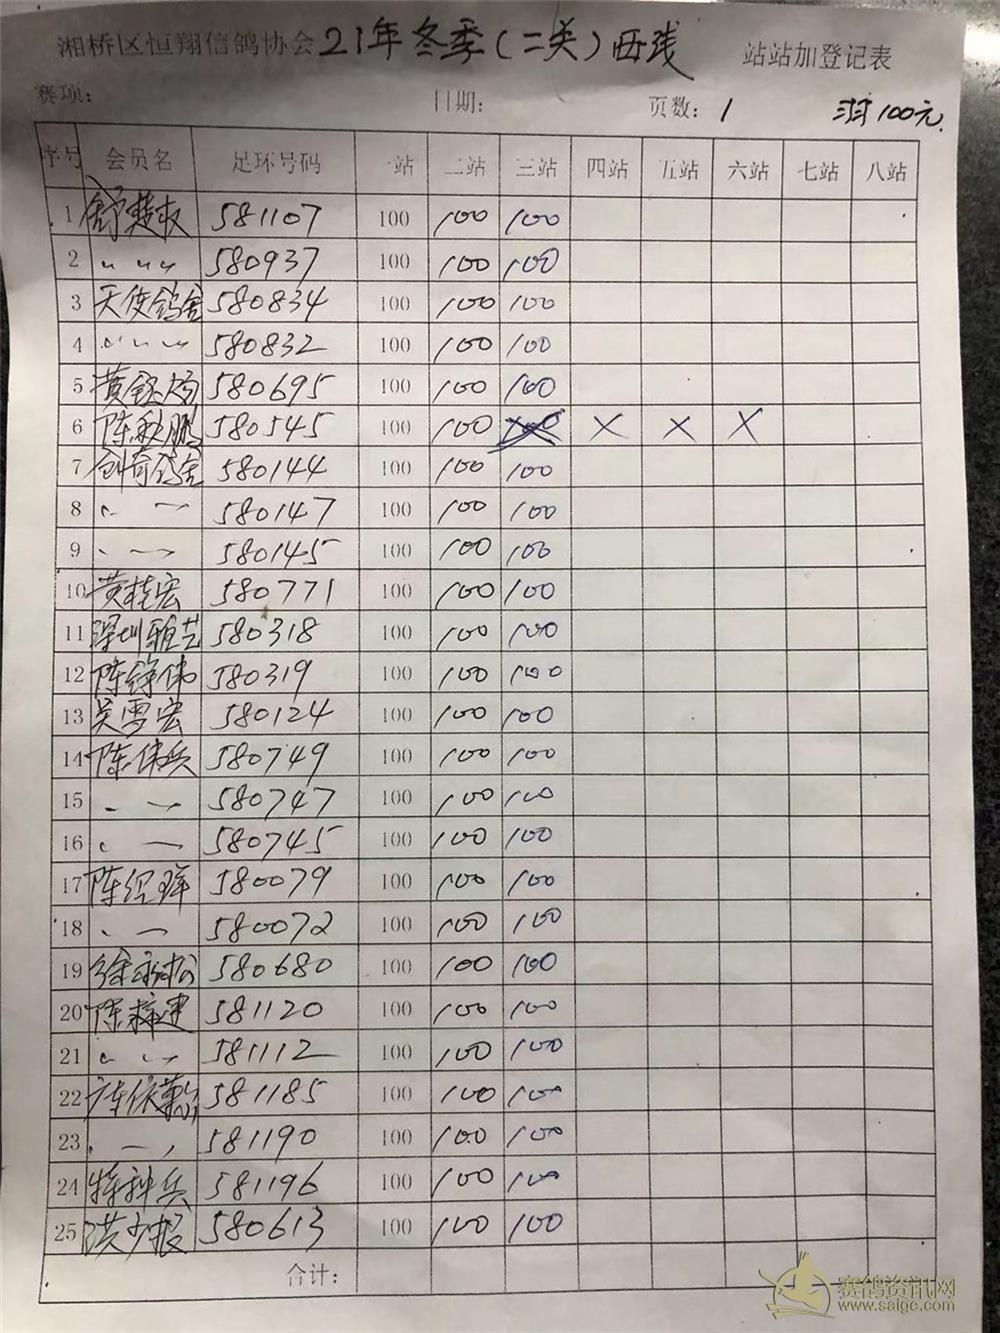 湘桥区恒翔信鸽协会 21年冬季(二关)西线 站站加登记表
赛项: 日期: 页数: 1 100元
序号 会员名 足环号码 一站 二站 三站 四站 五站 六站 七站 八站
1 581107 100 100 100
2 〃 〃 〃 580937 100 100 100
3 天使鸽舍 580834 100 100 100
4 〃 〃 〃 580832 100 100 100
5 黄 580695 100 100 100
6 陈 鹏 580545 100 100 100 × × ×
7 创奇鸽舍 580144 100 100 100
8 〃 〃 580147 100 100 100
9 〃 〃 580145 100 100 100
10 黄桂宏 580771 100 100 100
11 深圳雅艺 580318 100 100 100
12 陈 伟 580319 100 100 100
13 吴雪宏 580124 100 100 100
14 陈伟兵 580749 100 100 100
15 〃 〃 580747 100 100 100
16 〃 〃 580745 100 100 100
17 陈 580079 100 100 100
18 〃 〃 580072 100 100 100
19 徐 580680 100 100 100
20 陈梓建 581120 100 100 100
21 〃 〃 581112 100 100 100
22 581185 100 100 100
23 〃 〃 581190 100 100 100
24 特种兵 581196 100 100 100
25 洪少 580613 100 100 100
合计:
赛鸽资讯网
www.saige.com